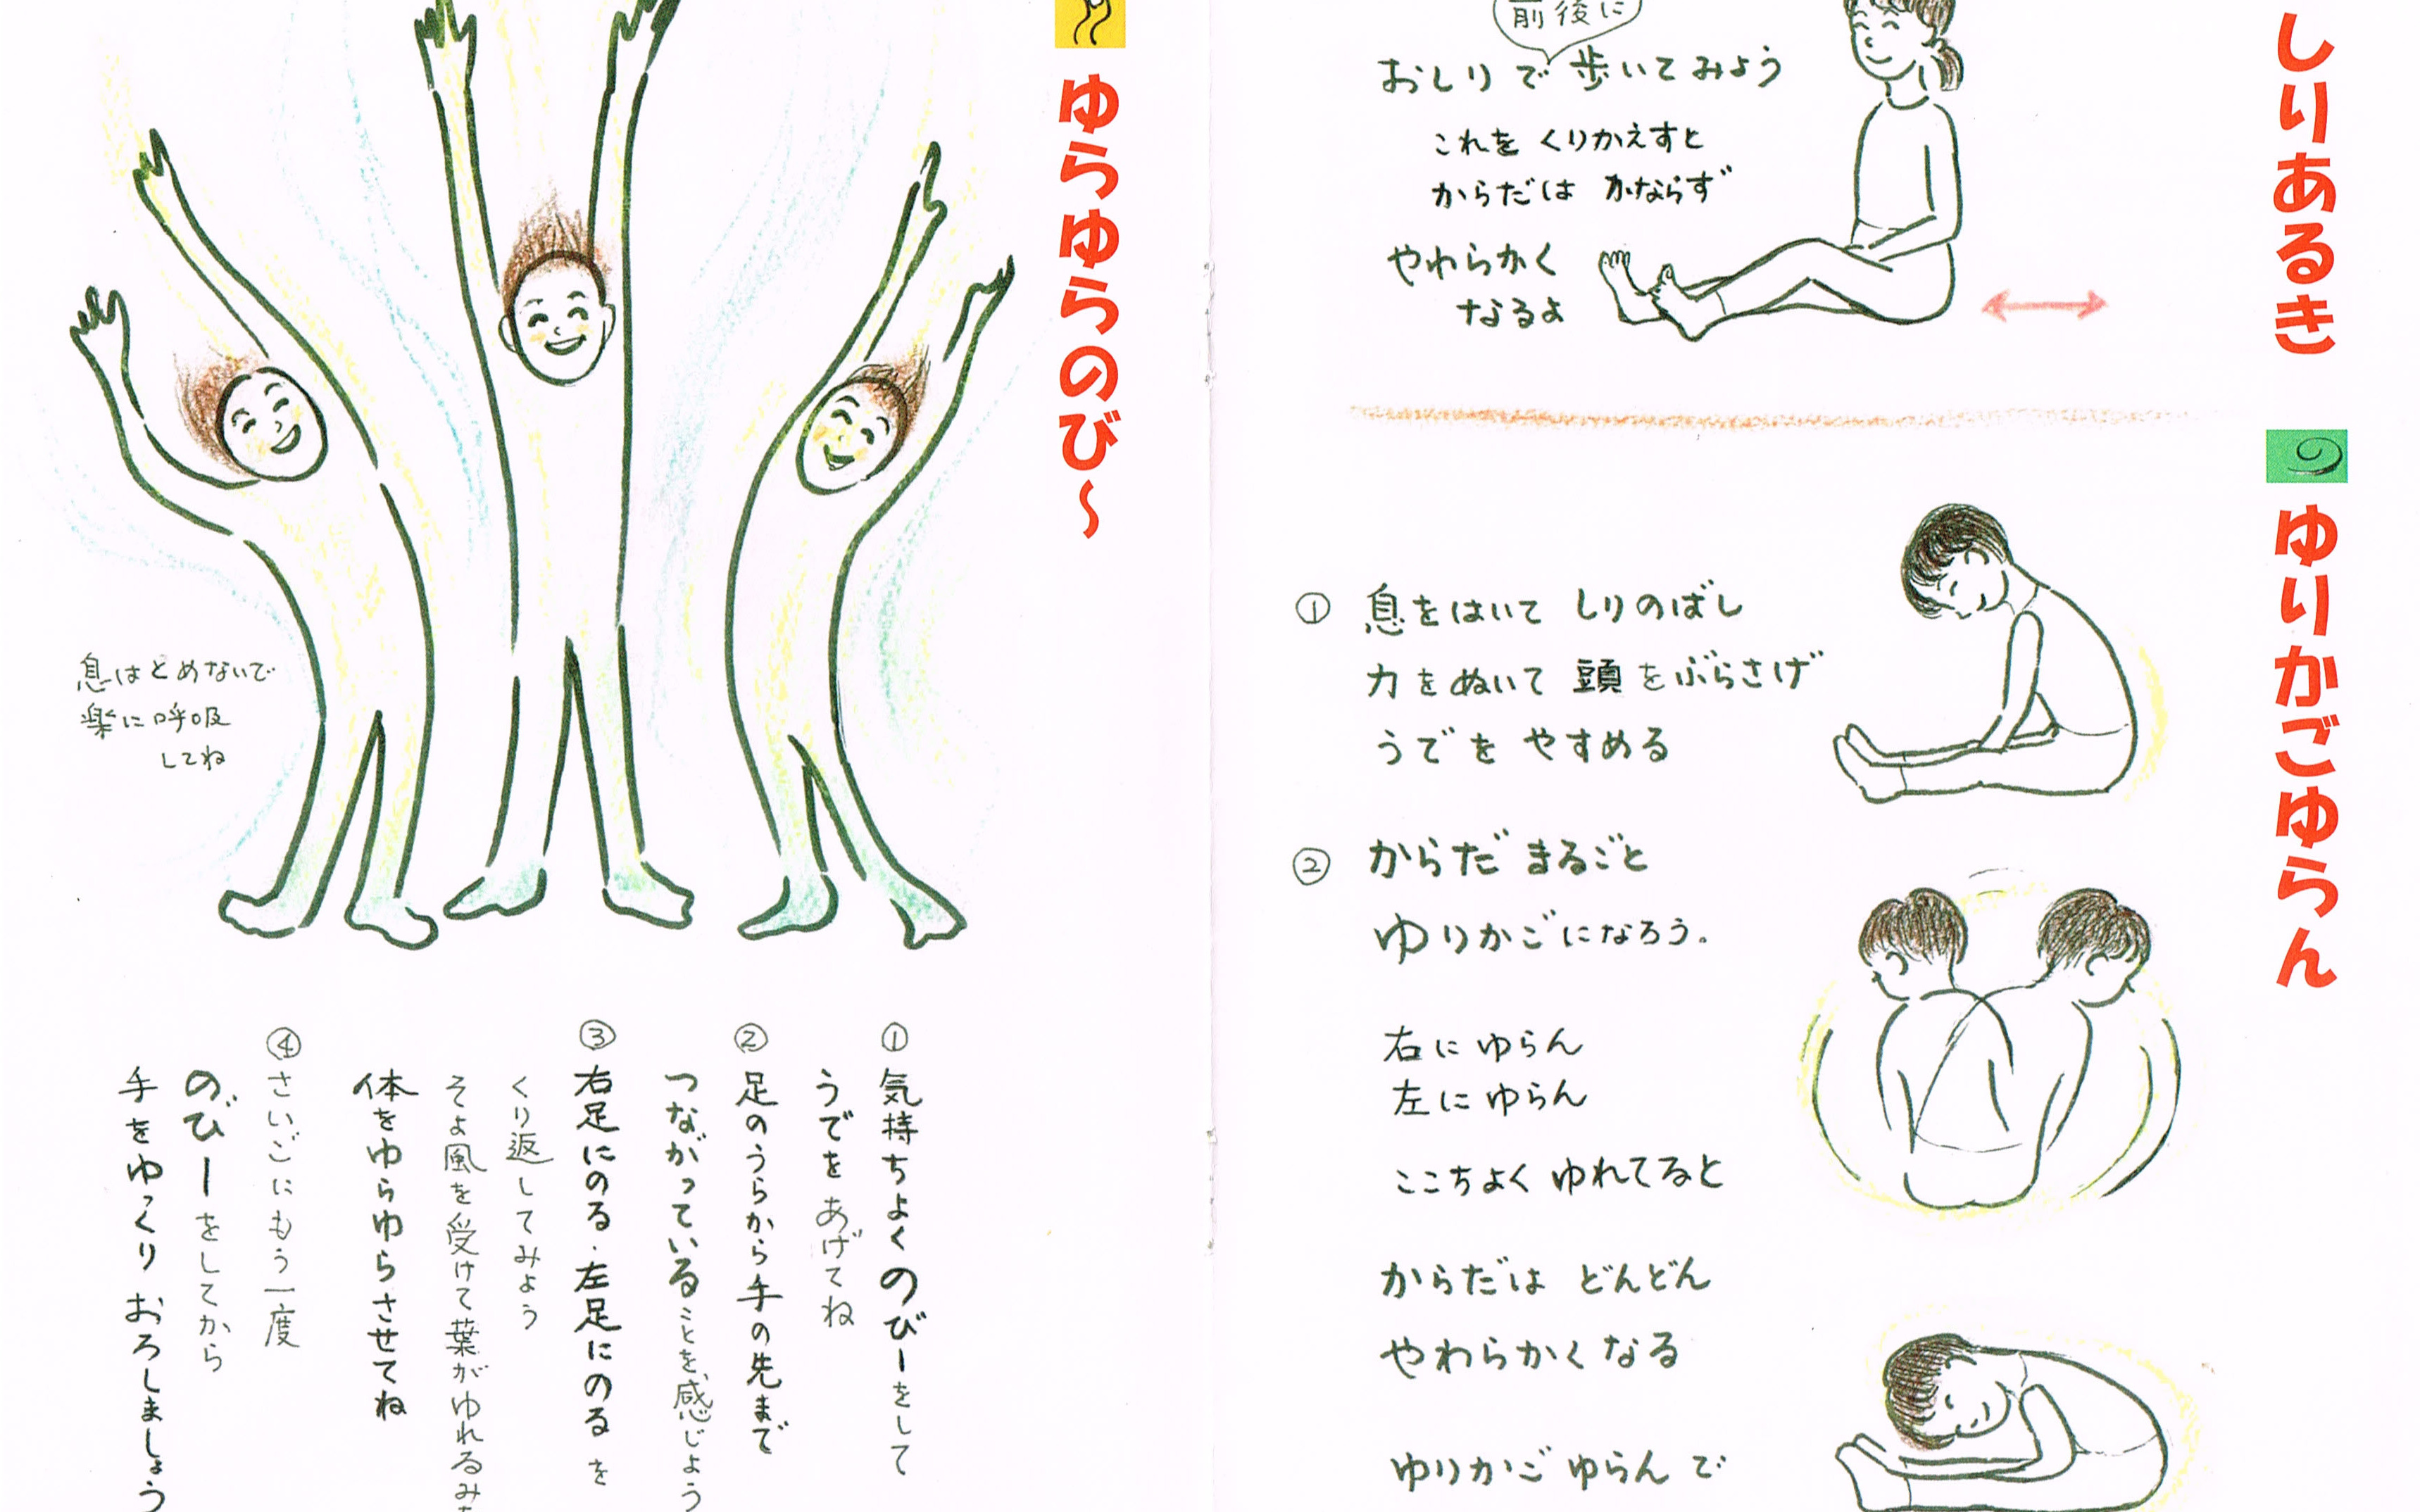 しりあるき
前後に
おしりで歩いてみよう
これを くりかえすと
からだは かならず
やわらかく
なるよ
ゆりかごゆらん
① 息をはいて しりのばし
力をぬいて 頭をぶらさげ
うでを やすめる
② からだ まるごと
ゆりかごになろう。
右に ゆらん
左に ゆらん
ここちよく ゆれてると
からだは どんどん
やわらかく なる
ゆりかご ゆらん で
ゆらゆらのび〜
息はとめないで
楽に呼吸
してね
① 気持ちよくのびーをして
うでを あげてね
② 足のうらから手の先まで
つながっていることを感じよう
③ 右足にのる・左足にのる を
くり返してみよう
そよ風を受けて葉がゆれるみ
体をゆらゆらさせてね
④ さいごにもう一度
のびーをしてから
手をゆっくり おろしましょう